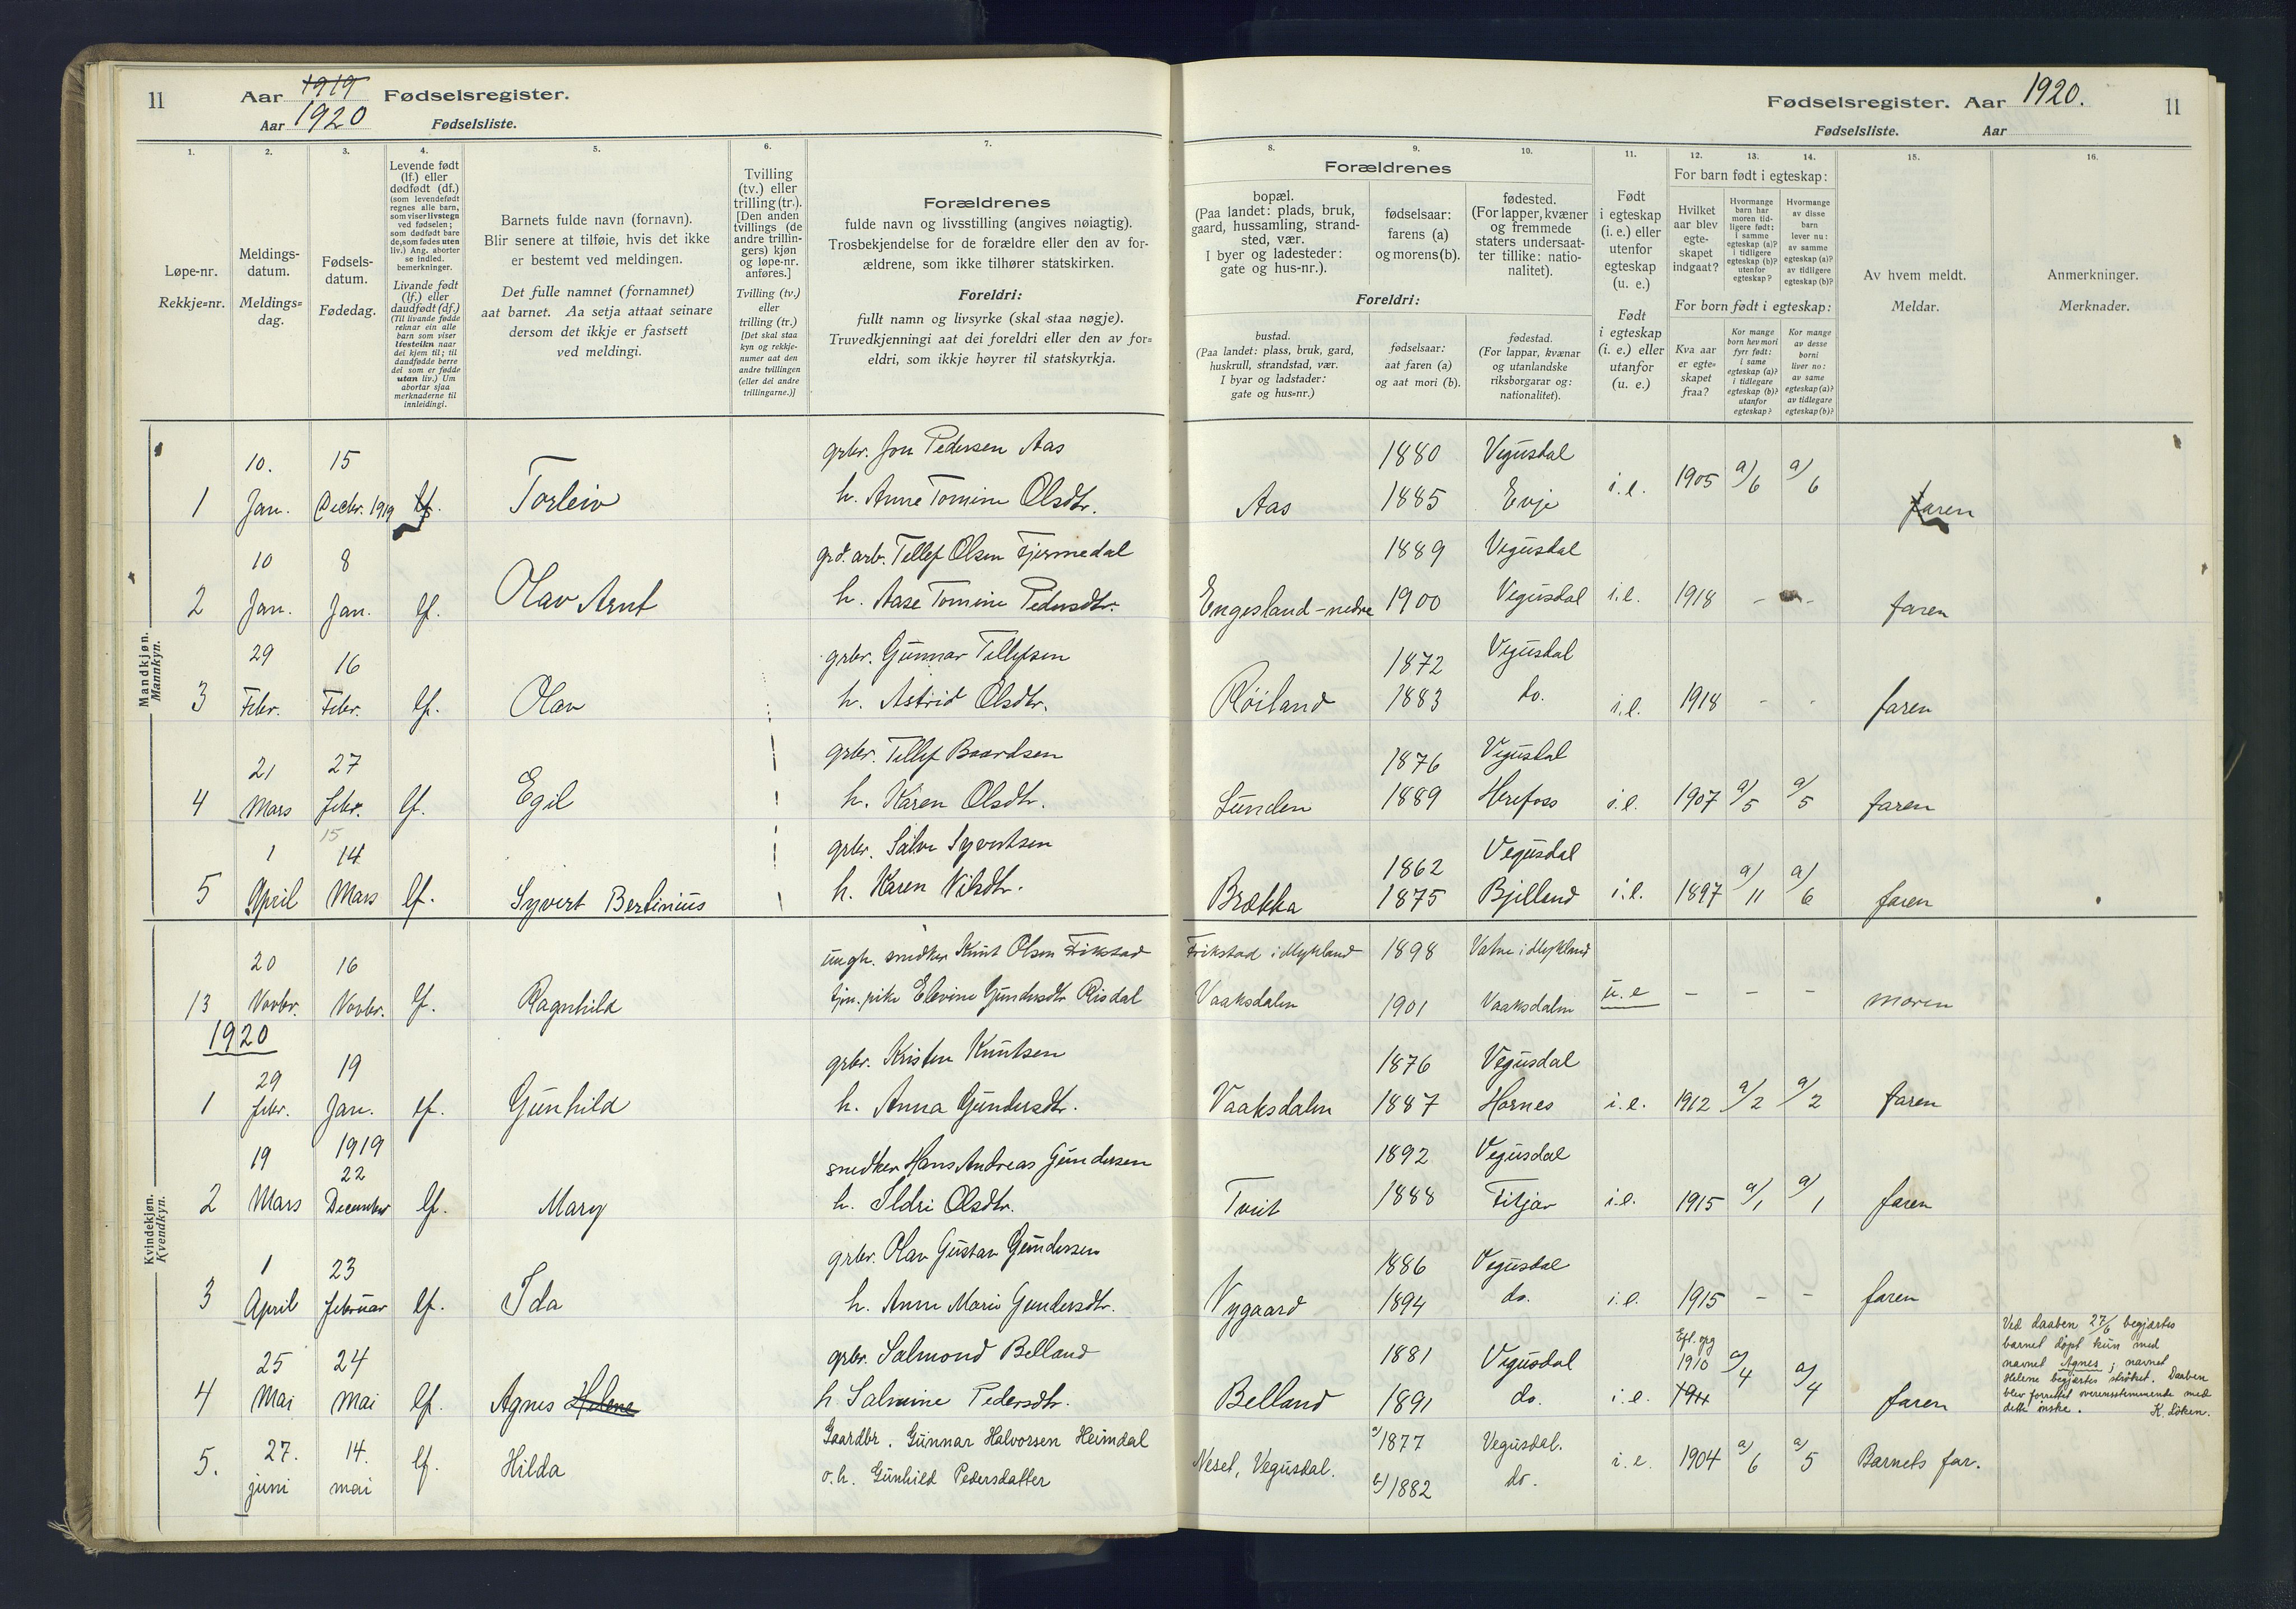 11
Aar 1919 Fødselsregister.
Aar 1920 Fødselsliste.
1.
Løpe-nr.
Rekkje=nr.
2.
Meldings-
datum.
Meldings=
dag.
3.
Fødsels-
datum.
Fødedag.
4.
Levende født
(lf.) eller
dødfødt (df.)
(som levendefødt
regnes alle barn,
som viser livstegn
ved fødselen;
som dødfødt bare
de, som fødes uten
liv.) Ang. aborter
se indled.
bemerkninger.
Livande født
(lf.) eller
daudfødt (df.)
(Til livande fødde
reknar ein alle
barn som viser
livsteikn naar
dei kjem til; til
daudfødde berre
dei som er fødde
utan liv.) Um
abortar sjaa
merknaderne til
innleidingi.
5.
Barnets fulde navn (fornavn).
Blir senere at tilføie, hvis det ikke
er bestemt ved meldingen.
Det fulle namnet (fornamnet)
aat barnet. Aa setja attaat seinare
dersom det ikkje er fastsett
ved meldingi.
6.
Tvilling
(tv.) eller
trilling (tr.).
[Den anden
tvillings (de
andre trillin-
gers) kjøn
og løpe-nr.
anføres.]
Tvilling (tv.)
eller
trilling (tr.)
[Det skal staa
kyn og rekkje-
numer aat den
andre tvillingen
(eller dei andre
trillingarne.)]
7.
Forældrenes
fulde navn og livsstilling (angives nøiagtig).
Trosbekjendelse for de forældre eller den av for-
ældrene, som ikke tilhører statskirken.
Foreldri:
fullt namn og livsyrke (skal staa nøgje).
Truvedkjenningi aat dei foreldri eller den av for=
eldri, som ikkje høyrer til statskyrkja.
Fødselsregister. Aar 1920. 11
Fødselsliste. Aar
Forældrenes
8.
bopæl.
(Paa landet: plads, bruk,
gaard, hussamling, strand-
sted, vær.
I byer og ladesteder:
gate og hus-nr.).
9.
fødselsaar:
farens (a)
og morens (b).
10.
fødested.
(For lapper, kvæner
og fremmede
staters undersaat-
ter tillike: natio-
nalitet).
Foreldri:
bustad.
(Paa landet: plass, bruk, gard,
huskrull, strandstad, vær.
I byar og ladstader:
gate og hus=nr.)
fødselsaar:
aat faren (a)
og aat mori (b).
fødestad.
(For lappar, kvænar
og utanlandske
riksborgarar og:
nationalitet).
11.
Født
i egteskap
(i. e.) eller
utenfor
egteskap
(u. e.)
Født
i egteskap
(i. e.) eller
utanfor
(u. e.)
12. 13. 14.
For barn født i egteskap:
Hvilket
aar blev
egte-
skapet
indgaat?
Hvormange
barn har
moren tid-
ligere født:
i samme
egteskap (a)?
i tidligere
egteskap (b)?
utenfor
egteskap?
Hvormange
av disse
barn
lever nu:
av samme
egteskap (a)?
av tidligere
egteskap (b)?
For born født i egteskap:
Kva aar
er egte=
skapet
fraa?
Kor mange
born hev mori
fyrr født:
i same
egteskap (a)?
i tidlegare
egteskap (b)?
utanfor
egteskap?
Kor mange
av desse
borni
liver no:
av same
egteskap (a)?
av tidlegare
egteskap (b)?
15.
Av hvem meldt.
Meldar.
16.
Anmerkninger.
Merknader.
Mandkjøn.
Mannkyn.
10. 15 grbr. Jon Pedersen Aas 1880 Vegusdal
1 Jan. Decbr. 1919 lf. Torleiv h. Anne Tomine Olsdtr. Aas 1885 Evje i.e. 1905 a/6 a/6 faren
10 8 grd. arb. Tellef Olsen Fjermedal 1889 Vegusdal
2 Jan. Jan. lf. Olav Arnt h. Aase Tomine Pedersdtr. Engesland-nedre 1900 Vegusdal i.e. 1918 - - faren
29 16 grbr. Gunnar Tellefsen 1872 Vegusdal
3 Febr. Febr. lf. Olav h. Astrid Olsdtr. Røiland 1883 do. i.e. 1918 - - faren
21 27 grbr. Tellef Baardsen 1876 Vegusdal
4 Mars febr. lf. Egil h. Karen Olsdtr. Lunden 1889 Herefoss i.e. 1907 a/5 a/5 faren
15
1 14 grbr. Salve Syvertsen 1862 Vegusdal
5 April Mars lf. Syvert Bertinius h. Karen Nilsdtr. Brækka 1875 Bjelland i.e. 1897 a/11 a/6 faren
Kvindekjøn.
Kvendkyn.
20 16 ungk. snedker Knut Olsen Frikstad Frikstad i Mykland 1898 Vatne i Mykland
13 Novbr. Novbr. lf. Ragnhild tjn. pike Elevine Gundersdtr Risdal Vaaksdalen 1901 Vaaksdalen u.e - - - moren
1920
29 19 grbr. Kristen Knutsen 1876 Vegusdal
1 febr. Jan. lf. Gunhild h. Anna Gundersdtr. Vaaksdalen 1887 Hornes i.e. 1912 a/2 a/2 faren
19 1919 22 snedker Hans Andreas Gundersen 1892 Vegusdal
2 Mars December lf. Mary h. Ildri Olsdtr. Tveit 1888 Fitjar i.e. 1915 a/1 a/1 faren
1 23 grbr. Olav Gustav Gundersen 1886 Vegusdal
3 April februar lf. Ida h. Anne Marie Gundersdtr. Nygaard 1894 do. i.e. 1915 - - faren
25 24 grbr. Salmond Belland 1881 Vegusdal 1910
4 Mai Mai lf. Agnes Helene h. Salmine Pedersdtr. Belland 1891 do. i.e. 1911 a/4 a/4 faren
Ved daaben 27/6 begjærtes
barnet døpt kun med
navnet Agnes; navnet
Helene begjærtes strøket. Daaben
blev forrettet overensstemmende med
dette ønske. K. Løken.
27. 14. Gaardbr. Gunnar Halvorsen Heimdal a/1877 Vegusdal.
5. juni mai lf. Hilda o. h. Gunhild Pedersdatter Neset, Vegusdal. b/1882 do. i.e. 1904 a/6 a/5 Barnets far.